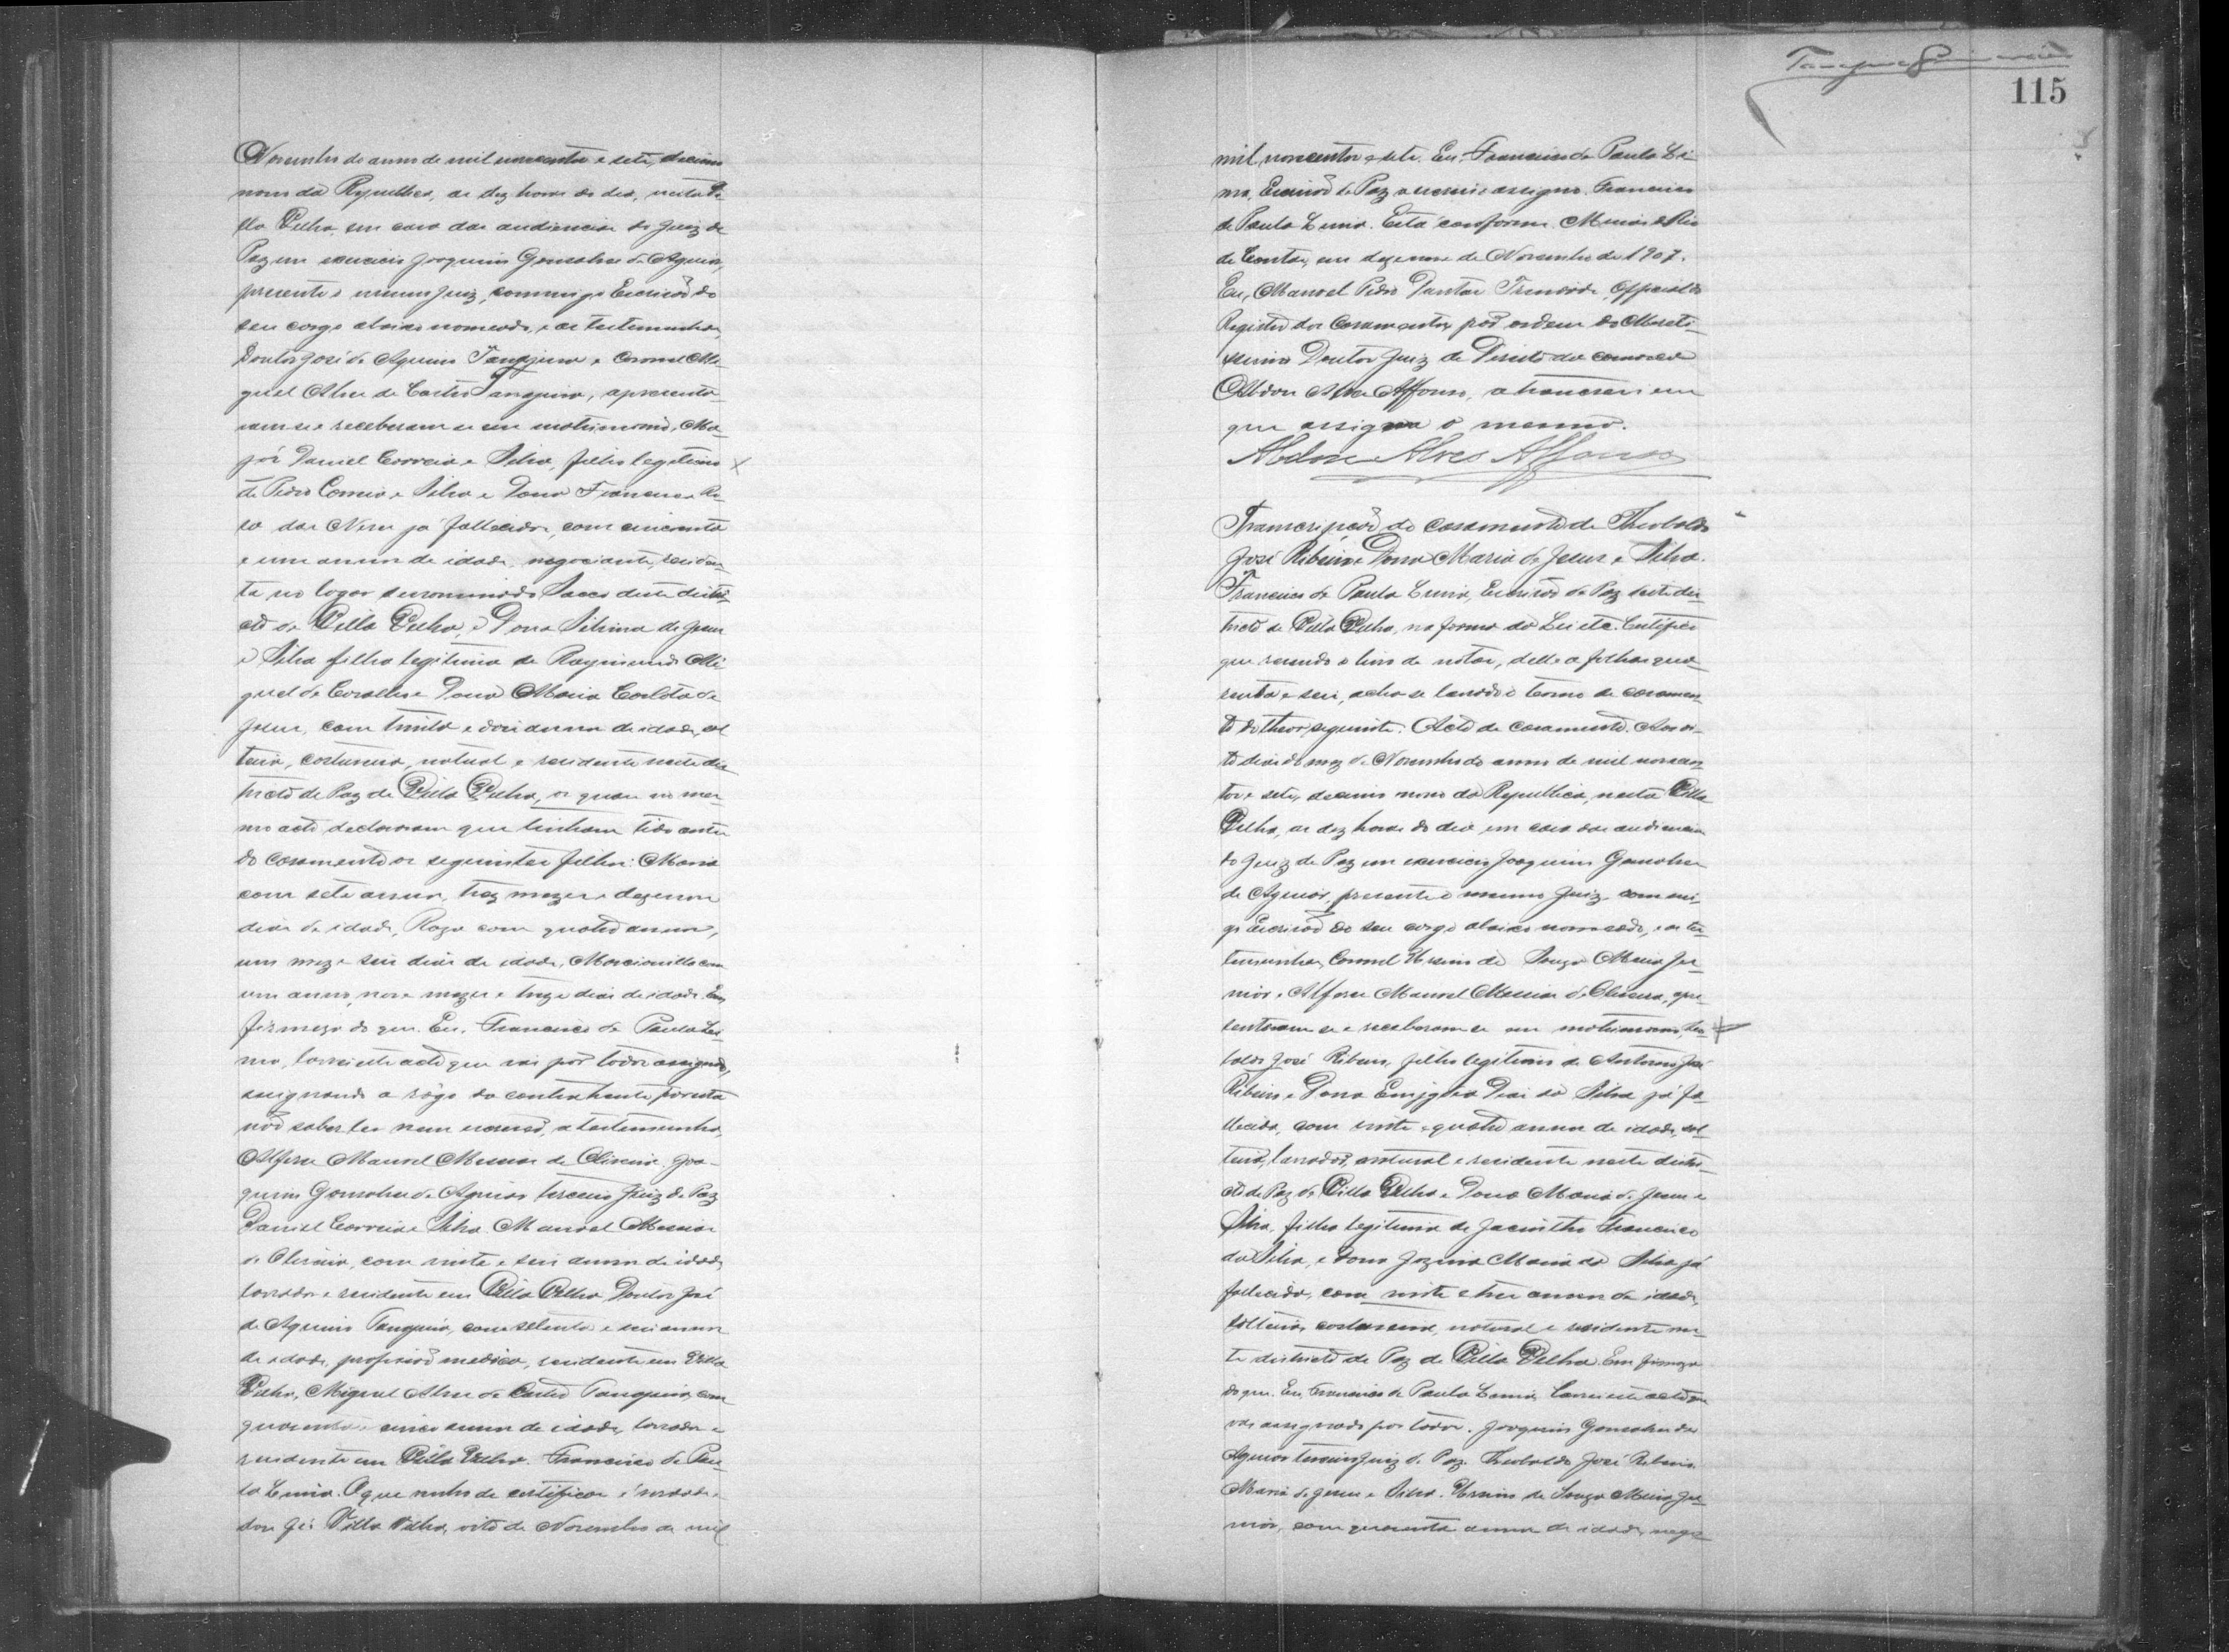 Novembro do anno de mil novecentos e sete, decimo
nono da Republica, as dez horas do dia, nesta Vi-
lla Velha, em casa das audiencias do Juiz de
Paz em exercicio Joaquim Gonsalves de Aguiar,
presente o mesmo Juiz, commigo Escrivão do
seu cargo abaixo nomeado, e as testemunhas,
Doutor José de Aquino Tanajura e Coronel Mi-
guel Alves de Castro Tanajura, apresenta-
ram-se e receberam-se em matrimonio, Ma-
jor Daniel Correia e Silva, filho legitimo
de Pedro Correia e Silva e Dona Francisca Ro-
sa das Neves já fallecidos, com cincoenta
e um annos de idade, negociante, residen-
te no logar denominado Sacco deste distri-
cto de Villa Velha, e Dona Silvina de Jesus
e Silva filha legitima de Raymundo Mi-
guel de Carvalho e Dona Maria Carlota de
Jesus, com trinta e dois annos de idade, sol
teira, costureira, natural e residente neste dis
tricto de Paz de Villa Velha, os quaes no mes-
mo acto declararam que tinham tido antes
do casamento os seguintes filhos: Maria
com sete annos, trez mezes e dezenove
dias de idade, Roza com quatro annos,
um mez e seis dias de idade, Marcionilla com
um anno, nove mezes e treze dias de idade. Em
firmeza do que. Eu, Francisco de Paula Le-
mo, lavrei este acto que vai por todos assignado,
assignando a rôgo da contrahente por esta
não saber ler nem escrever, a testemunha,
Alferes Manoel Messias de Oliveira. Joa-
quim Gonsalves de Aguiar terceiro Juiz de Paz
Daniel Correia e Silva. Manoel Messias
de Oliveira, com vinte e seis annos de idade,
lavrador e residente em Villa Velha. Doutor José
de Aquino Tanajura, com setenta e seis annos
de idade, profissão medico, residente em Villa
Velha, Miguel Alves de Castro Tanajura, com
quarenta e cinco annos de idade, lavrador e
residente em Villa Velha. Francisco de Pau-
la Lemo. O que nelle de certificar é verdade e
dou fé. Villa Velha, oito de Novembro de mil
115
mil novecentos e sete. Eu, Francisco de Paula Le-
mo, Escrivão de Paz o escrevi e assigno. Francisco
de Paula Lemo. Está conforme. Minas do Rio
de Contas, em dezenove de Novembro de 1907.
Eu, Manoel Pedro Dantas Trindade, Official do
Registro dos Casamentos, por ordem do Mereti-
ssimo Doutor Juiz de Direito da comarca
Abdon Alves Affonso, a transcrevi em
que assigna o mesmo.
Abdon Alves Affonso
Transcripção do casamento de Theobaldo
José Ribeiro e Dona Maria de Jesus e Silva.
Francisco de Paula Lemo, Escrivão de Paz deste dis-
tricto de Villa Velha, na forma da Lei etc. Certifico
que revendo o livro de notas, delle a folhas qua-
renta e seis, acha-se lavrado o termo de casamen-
to do theor seguinte. Acto de casamento. Aos oi-
to dias do mez de Novembro do anno de mil novecen-
tos e sete, decimo nono da Republica, nesta Villa
Velha, as dez horas do dia em casa das audiencias
do Juiz de Paz em exercicio Joaquim Gonsalves
de Aguiar, presente o mesmo Juiz, commi-
go Escrivão do seu cargo abaixo nomeado, e as tes-
temunhas, Coronel de Souza Meira Ju-
nior e Alferes Manoel Messias de Oliveira, apre-
sentaram-se e receberam-se em matrimonio, Theo
baldo José Ribeiro, filho legitimo de Antonio José
Ribeiro e Dona Dias da Silva já fa-
llecida, com vinte e quatro annos de idade, sol-
teiro, lavrador, natural e residente neste distri-
cto de Paz de Villa Velha e Dona Maria de Jesus e
Silva, filha legitima de Jacintho Francisco
da Silva, e Dona Jozina Maria da Silva já
fallecida, com vinte e tres annos de idade,
solteira, costureira, natural e residente nes-
te districto de Paz de Villa Velha. Em firmeza
do que. Eu, Francisco de Paula Lemo, lavrei este acto que
vai assignado por todos. Joaquim Gonsalves de
Aguiar terceiro Juiz de Paz. Theobaldo José Ribeiro.
Maria de Jesus e Silva. de Souza Meira Ju-
nior, com quarenta annos de idade, nego-